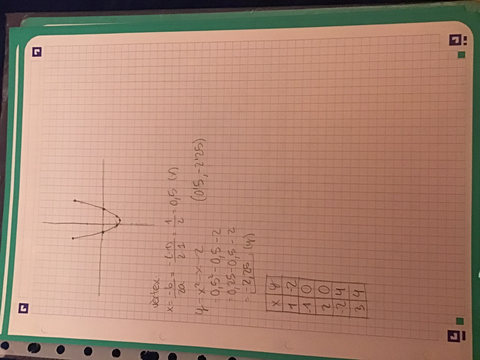 vertex
x = -b/2a = -(-1)/2·1 = 1/2 = 0,5 (x)
y = x² - x - 2
= 0,5² - 0,5 - 2
= 0,25 - 0,5 - 2
= -2,25 (y)
(0,5, -2,25)
x y
1 -2
-1 0
2 0
-2 4
3 4